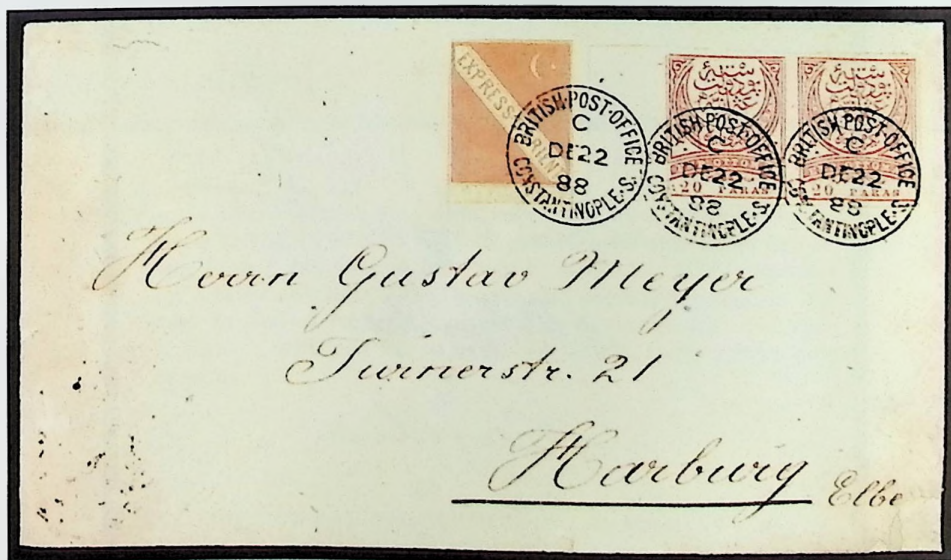 EXPRESS
BRITISH·POST·OFFICE
C
DE22
88
CONSTANTINOPLE·S·
BRITISH·POST·OFFICE
C
DE22
88
CONSTANTINOPLE·S·
BRITISH·POST·OFFICE
C
DE22
88
CONSTANTINOPLE·S·
20 PARAS
20 PARAS
Herrn Gustav Meyer
Turnerstr. 21
Harburg Elbe